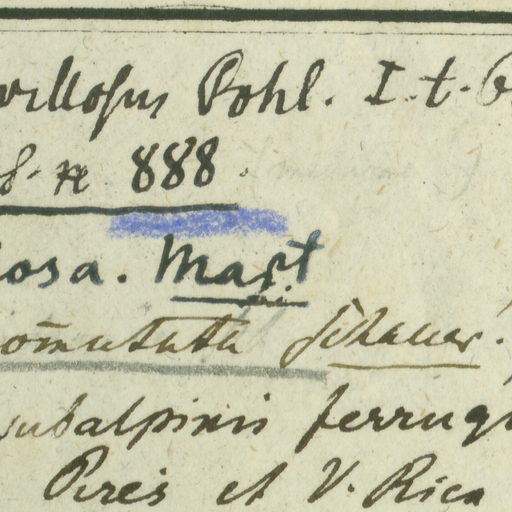 villosus Pohl. I. t. 6
n 888.
osa. Mart
ommutata Schauer.
subalpinis ferrug
Pires et V. Rica